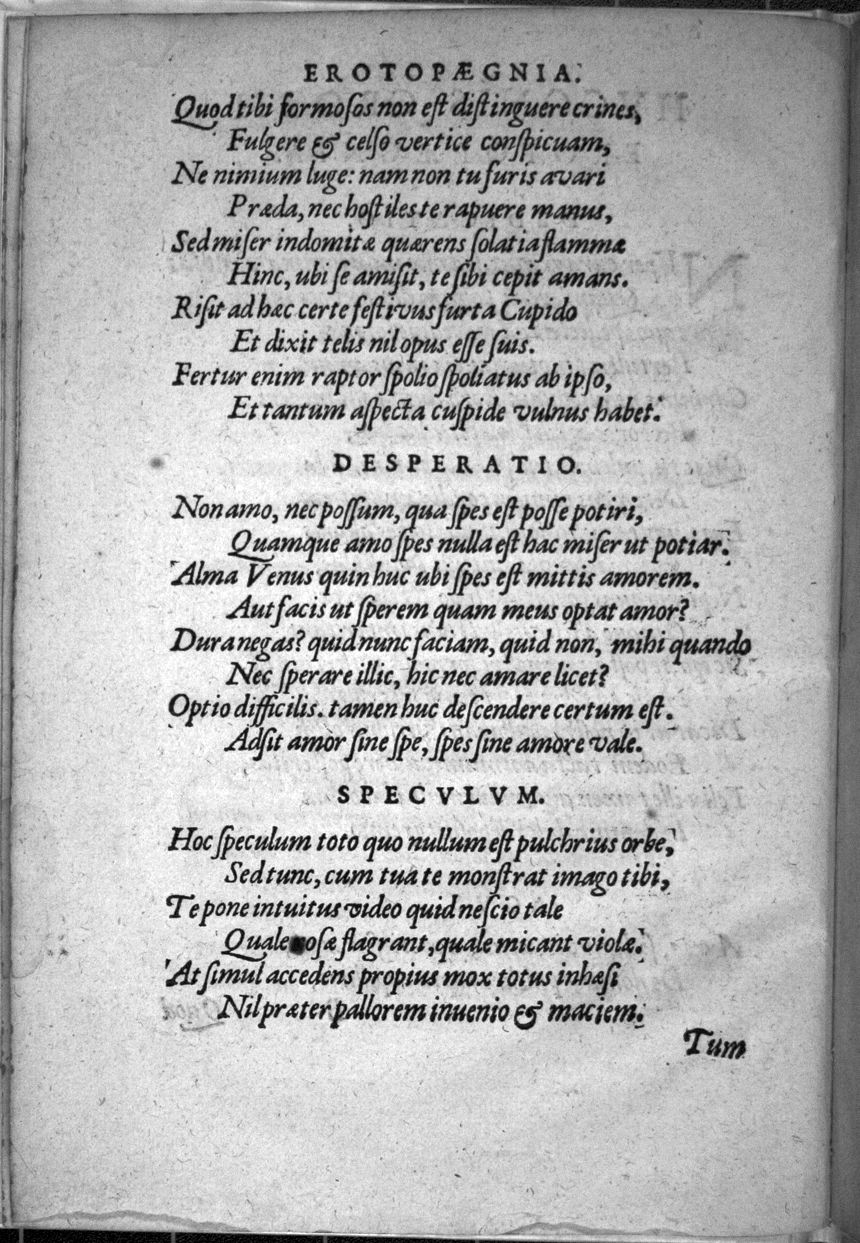 EROTOPÆGNIA.
Quod tibi formosos non est distinguere crines,
Fulgere & celso vertice conspicuam,
Ne nimium luge: nam non tu furis avari
Præda, nec hostiles te rapuere manus,
Sed miser indomitæ quærens solatia flammæ
Hinc, ubi se amisit, te sibi cepit amans.
Risit ad hæc certe festivus furta Cupido
Et dixit telis nil opus esse suis.
Fertur enim raptor spolio spoliatus ab ipso,
Et tantum aspecta cuspide vulnus habet.
DESPERATIO.
Non amo, nec possum, qua spes est posse potiri,
Quamque amo spes nulla est hac miser ut potiar.
Alma Venus quin huc ubi spes est mittis amorem.
Aut facis ut sperem quam meus optat amor?
Dura negas? quid nunc faciam, quid non, mihi quando
Nec sperare illic, hic nec amare licet?
Optio difficilis. tamen huc descendere certum est.
Adsit amor sine spe, spes sine amore vale.
SPECVLVM.
Hoc speculum toto quo nullum est pulchrius orbe,
Sed tunc, cum tua te monstrat imago tibi,
Te pone intuitus video quid nescio tale
Quale osæ flagrant, quale micant violæ.
At simul accedens propius mox totus inhæsi
Nil præter pallorem inuenio & maciem.
Tum